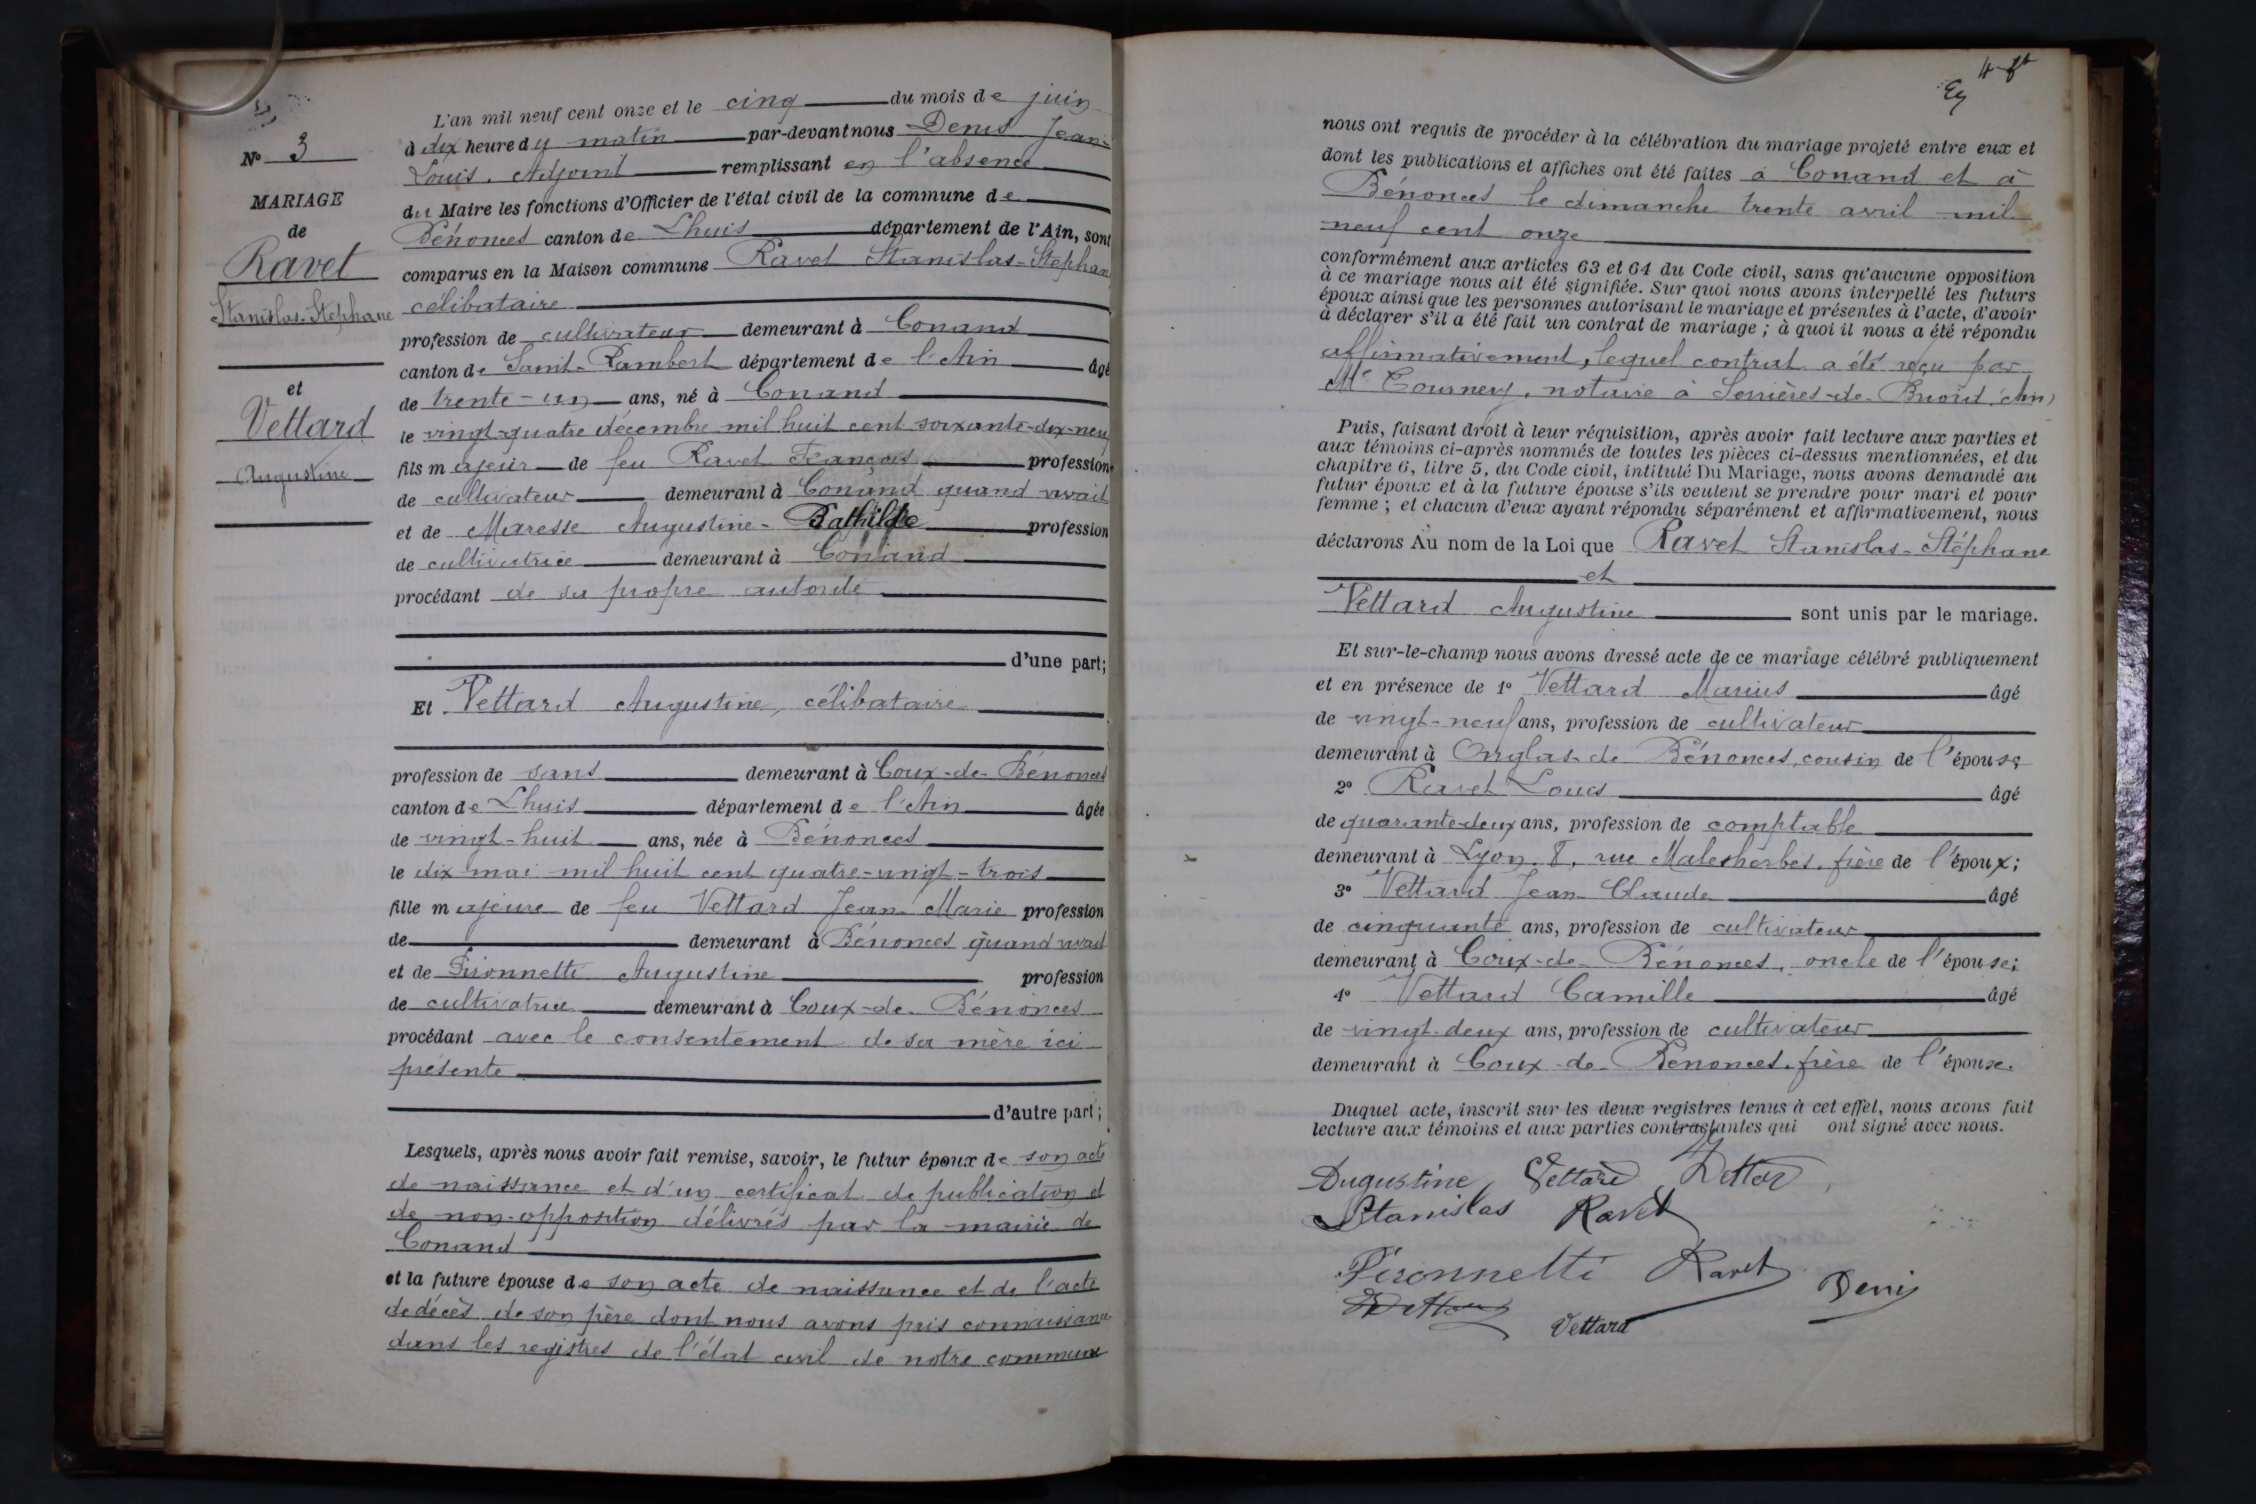 N° 3
MARIAGE
de
Ravet
Stanislas-Stéphane
et
Vettard
Augustine
L'an mil neuf cent onze et le cinq du mois de juin
à dix heure du matin par-devant nous Denis Jean-
Louis, Adjoint remplissant en l'absence
du Maire les fonctions d'Officier de l'état civil de la commune de
Bénonces canton de Lhuis département de l'Ain, sont
comparus en la Maison commune Ravet Stanislas-Stéphane
célibataire
profession de cultivateur demeurant à Conand
canton de Saint-Rambert département de l'Ain âgé
de trente-un ans, né à Conand
le vingt-quatre décembre mil huit cent soixante-dix-neuf
fils majeur de feu Ravet François profession
de cultivateur demeurant à Conand quand vivait
et de Maresse Augustine-Bathilde profession
de cultivatrice demeurant à Conand
procédant de sa propre autorité
d'une part;
Et Vettard Augustine, célibataire
profession de sans demeurant à Coux-de-Bénonces
canton de Lhuis département de l'Ain âgée
de vingt-huit ans, née à Bénonces
le dix mai mil huit cent quatre-vingt-trois
fille majeure de feu Vettard Jean-Marie profession
de demeurant à Bénonces quand vivait
et de Pironnetti Augustine profession
de cultivatrice demeurant à Coux-de-Bénonces
procédant avec le consentement de sa mère ici
présente
d'autre part;
Lesquels, après nous avoir fait remise, savoir, le futur époux de son acte
de naissance et d'un certificat de publication et
de non-opposition délivrés par la mairie de
Conand
et la future épouse de son acte de naissance et de l'acte
de décès de son père dont nous avons pris connaissance
dans les registres de l'état civil de notre commune
nous ont requis de procéder à la célébration du mariage projeté entre eux et
dont les publications et affiches ont été faites à Conand et à
Bénonces le dimanche trente avril mil
neuf cent onze
conformément aux articles 63 et 64 du Code civil, sans qu'aucune opposition
à ce mariage nous ait été signifiée. Sur quoi nous avons interpellé les futurs
époux ainsi que les personnes autorisant le mariage et présentes à l'acte, d'avoir
à déclarer s'il a été fait un contrat de mariage; à quoi il nous a été répondu
affirmativement, lequel contrat a été reçu par
Me Tournery, notaire à Serrières-de-Briord (Ain)
Puis, faisant droit à leur réquisition, après avoir fait lecture aux parties et
aux témoins ci-après nommés de toutes les pièces ci-dessus mentionnées, et du
chapitre 6, titre 5, du Code civil, intitulé Du Mariage, nous avons demandé au
futur époux et à la future épouse s'ils veulent se prendre pour mari et pour
femme; et chacun d'eux ayant répondu séparément et affirmativement, nous
déclarons Au nom de la Loi que Ravet Stanislas-Stéphane
et
Vettard Augustine sont unis par le mariage.
Et sur-le-champ nous avons dressé acte de ce mariage célébré publiquement
et en présence de 1° Vettard Marius âgé
de vingt-neuf ans, profession de cultivateur
demeurant à Onglas-de Bénonces, cousin de l'épouse
2° Ravet Louis âgé
de quarante-deux ans, profession de comptable
demeurant à Lyon, 8, rue Malesherbes, frère de l'époux;
3° Vettard Jean-Claude âgé
de cinquante ans, profession de cultivateur
demeurant à Coux-de-Bénonces, oncle de l'épouse;
4° Vettard Camille âgé
de vingt-deux ans, profession de cultivateur
demeurant à Coux-de-Bénonces, frère de l'épouse.
Duquel acte, inscrit sur les deux registres tenus à cet effet, nous avons fait
lecture aux témoins et aux parties contractantes qui ont signé avec nous.
Augustine Vettard
Stanislas Ravet
Pironnetti Ravet Denis
Vettard